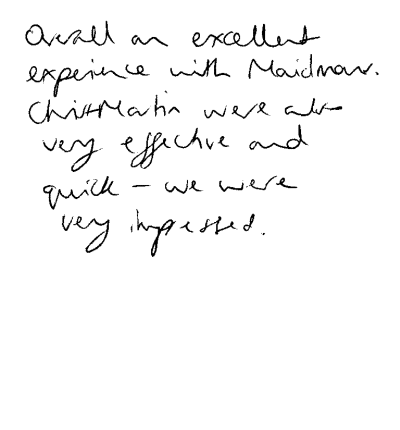 Overall an excellent
experience with Maidman.
Chris + Martin were
very effective and
quick – we were
very impressed.